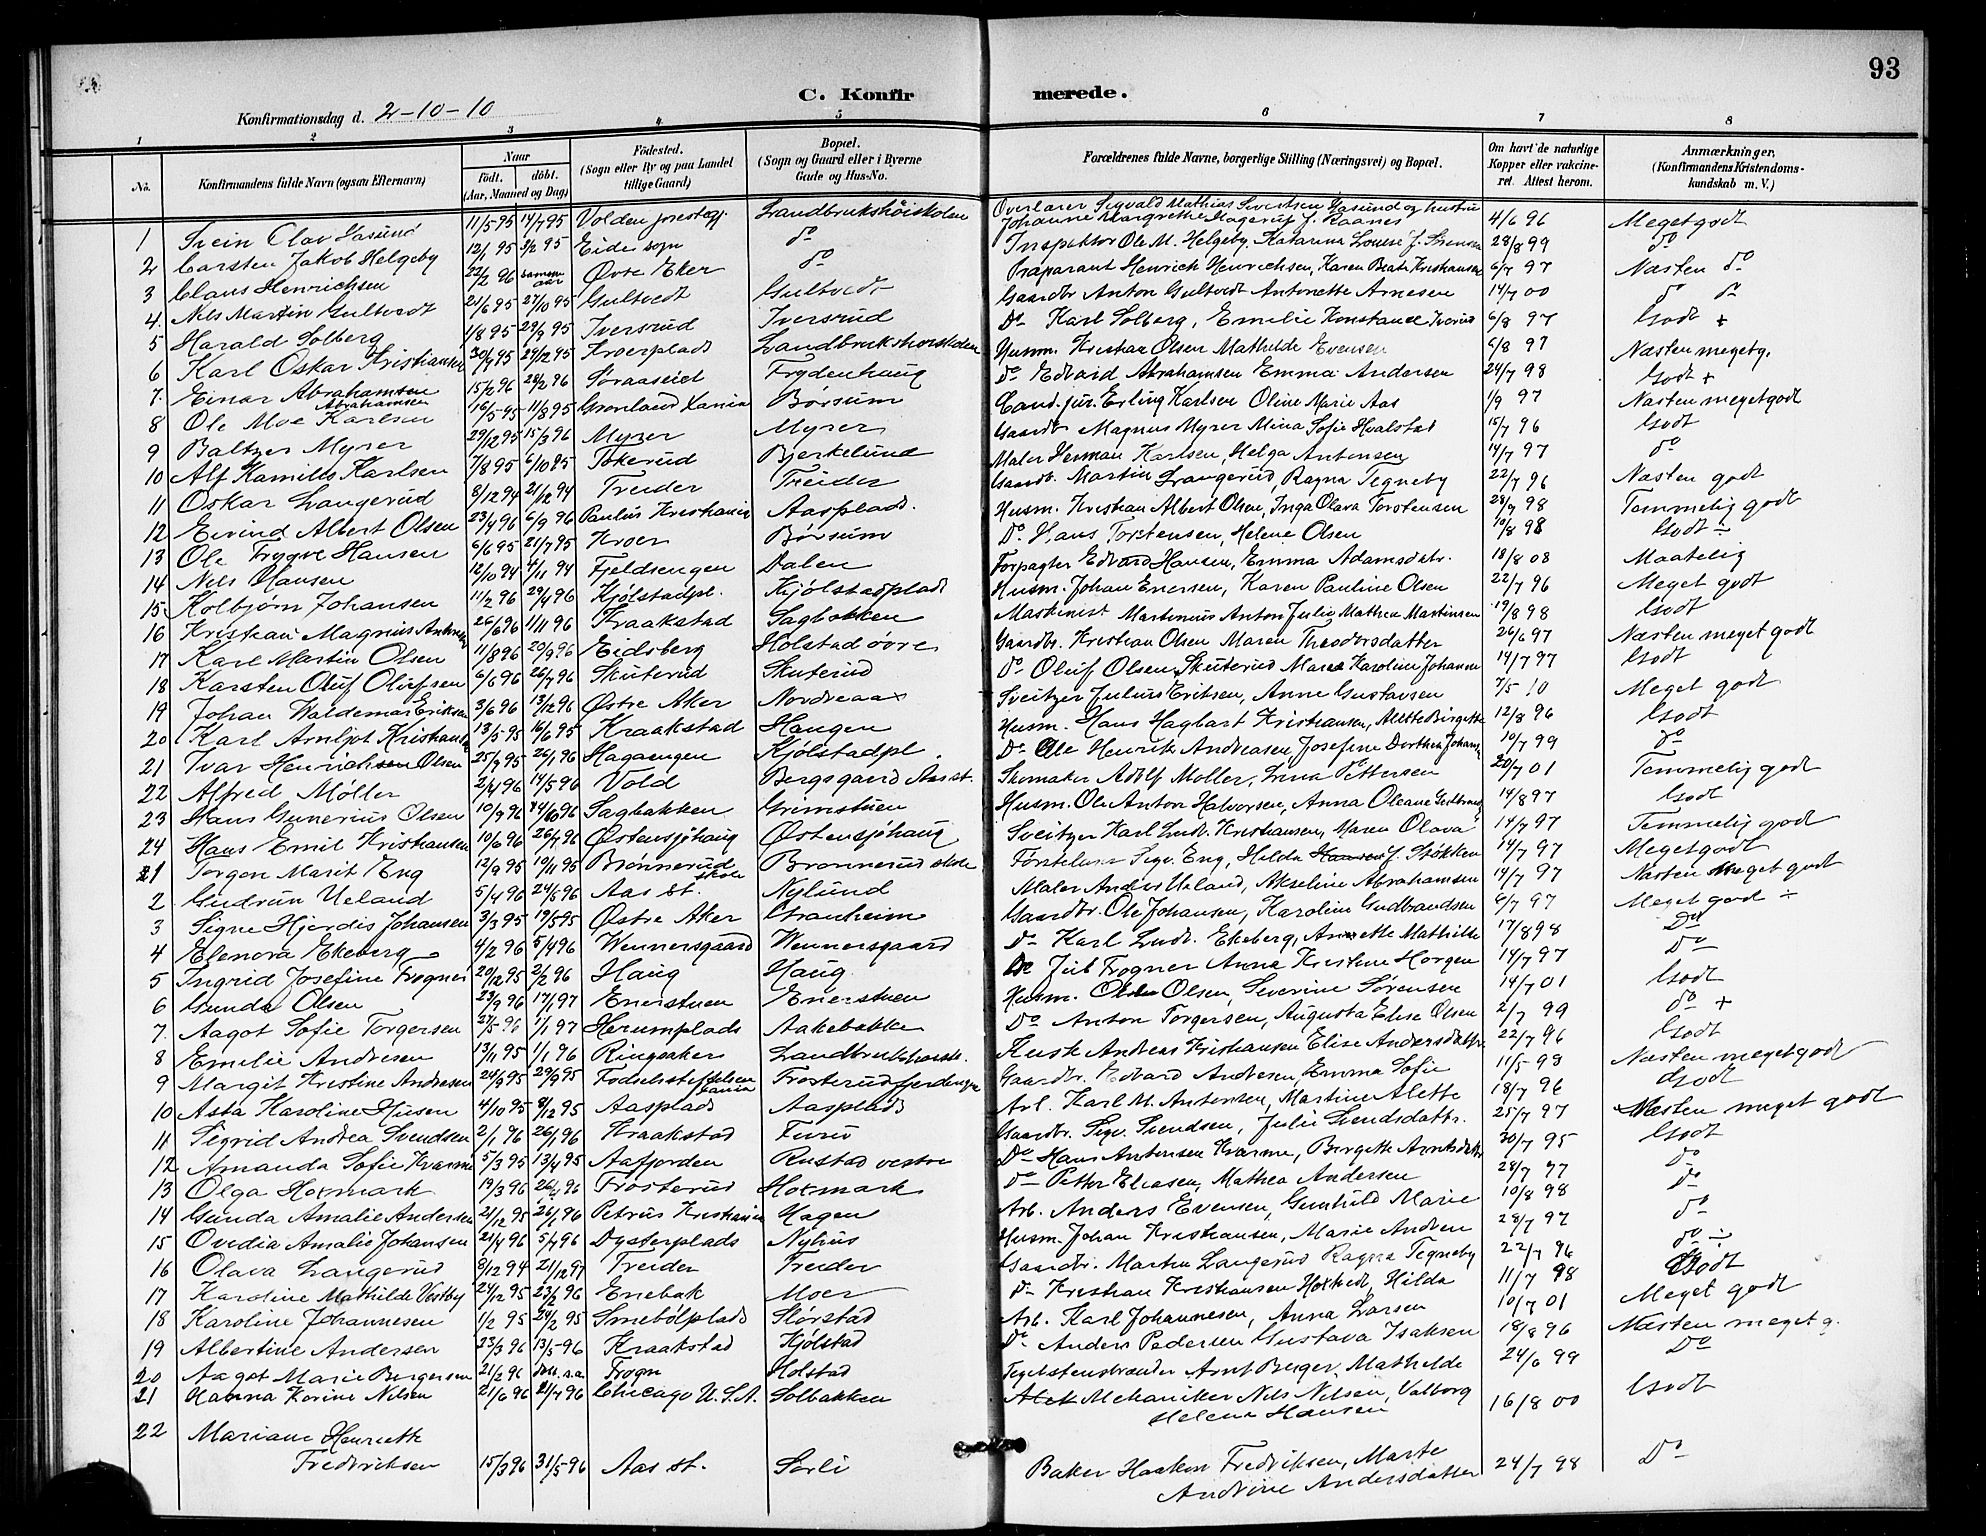 93
C. Konfirmerede.
Konfirmationsdag d. 2-10-10
1 2 3 4 5 6 7 8
No. Konfirmandens fulde Navn (ogsaa Efternavn) Naar født. døbt. (Aar, Maaned og Dag) Fødested. (Sogn eller By og paa Landet tillige Gaard) Bopæl. (Sogn og Gaard eller i Byerne Gade og Hus-No. Forældrenes fulde Navne, borgerlige Stilling (Næringsvei) og Bopæl. Om havt de naturlige Kopper eller vakcineret. Attest herom. Anmærkninger, (Konfirmandens Kristendomskundskab m. V.)
1 Svein Olav Hasund 11/5 95 14/7 95 Volden Landbrukshöiskolen Overlærer Sigvald Mathias Sivertsen Hasund og hustru Johanne Margrethe Hagerup f. Raanes 4/6 96 Meget godt
2 Carsten Jakob Helgeby 12/1 95 3/2 95 Eids sogn do Inspektor Ole M. Helgeby, Katarina Lovise f. 28/8 99 do
3 Claus Henrichsen 22/2 96 samme aar Øvre Eker do Præparant Henrich Henrichsen, Karen Beate Kristiansen 6/7 97 Næsten do
4. Nils Martin Gultvedt 21/6 95 27/10 95 Gultvedt Gultvedt Gaardbr Anton Gultvedt Antonette Arnesen 14/7 00 do do
5 Harald Solberg 1/8 95 29/9 95 Iversrud Iversrud Do Karl Solberg, Emelie Konstanse Iversrud 6/8 97 Godt +
6 Karl Oskar Kristiansen 30/9 95 29/12 95 Kroerplads Landbrukshoiskolen Husm. Kristian Olsen Mathilde Evensen 6/8 97 Næsten megetg.
7. Einar Abrahamsen 15/2 96 28/2 96 Søraaseiet Frydenhaug Do Edvard Abrahamsen Emma Andersen 24/7 98 Godt +
8 Ole Moe Karlsen Abrahamsen 16/5 95 11/8 95 Grønland Xania Borsum Cand. jur. Erling Karlsen Oline Marie Aas 1/9 97 Næsten megetgodt
9 Baltzer Myrer 29/12 95 15/3 96 Myrer Myrer Gaardbr Magnus Myrer Mina Sofie Hvalstad 15/7 96 Godt
10 Alf Kamillo Karlsen 7/8 95 6/10 95 Tokerud Bjerkelund Maler Herman Karlsen, Helga Antonsen 14/7 97 do
11 Oskar Langerud 8/12 94 21/12 94 Treider Treider Gaardb. Martin Langerud, Ragna Tegneby 22/7 96 Næsten godt
12 Eivind Albert Olsen 23/4 96 6/9 96 Paulus Kristiania Aasplads. Husm. Kristian Albert Olsen, Inga Olava Torstensen 28/7 98 Temmelig godt
13 Ole Trygve Hansen 6/6 95 21/7 95 Kroer Børsum Do Hans Torstensen, Helene Olsen 10/8 98 Godt ÷
14 Nils Hansen 12/10 94 4/11 94 Fjeldsengen Dalen Forpagter Edvard Hansen, Emma Adamsdatr. 18/8 08 Maatelig
15 Kolbjørn Johansen 11/2 96 29/4 96 Kjölstadpl. Kjölstadplads Husm. Johan Enersen, Karen Pauline Olsen 22/7 96 Meget godt
16 Kristian Magnus Antonsen 26/6 96 11/11 96 Kraakstad Sagbakken Maskinist Martinius Anton Julie Mathea Martinsen 19/8 98 Godt
17 Karl Martin Olsen 11/8 96 20/9 96 Eidsberg Holstad övre Gaardbr. Kristian Olsen Maren Theodorsdatter 26/6 97 Næsten meget godt
18 Karsten Oluf Olufsen 6/6 96 26/7 96 Skuterud Skuterud do Oluf Olsen Skuterud Maren Karoline Johanne 14/7 97 Godt
19 Johan Waldemar Eriksen 3/6 96 13/12 96 Østre Aker Nordreaas Sveitzer Julius Eriksen, Anne Gustavsen 7/5 10 Meget godt
20 Karl Arnljot Kristiansen 13/5 95 16/6 95 Kraakstad Haugen Husm. Hans Hagbart Kristiansen, Alette Birgette 12/8 96 Godt
21 Ivar Henrichsen Olsen 25/9 95 26/1 96 Hagaengen Kjölstadpl. Do Ole Henrik Andreasen Josefine Dorthea Johans 10/7 99 do
22 Alfred Møller 2/4 96 14/5 96 Vold Bergsgaard Aas st. Skomaker Adolf Moller, Lina Pettersen 20/7 01 Temmelig godt
23 Hans Gunerius Olsen 10/9 96 Sagbakken Grimstuen Husm. Ole Anton Halvorsen, Anna Oleane Gulbrands 14/8 97 Godt
24 Hans Emil Kristiansen 10/6 96 26/7 96 Østensjöhaug Østensjöhaug Sveitzer Karl Ludv. Kristiansen, Maren Olava 14/7 97 Temmelig godt
1 Torgon Marit Eng 12/9 95 19/11 95 Brønnerud skole Brønnerud skole Førstelærer Sigv. Eng, Hilda Hansen f. Stokken 14/7 97 Megetgodt
2 Gudrun Ueland 5/4 96 24/5 96 Aas st. Nylund Maler Anders Ueland, Akseline Abrahamsen 14/7 97 Næsten meget godt
3 Signe Hjordis Johansen 3/3 95 19/5 95 Østre Aker Granheim Gaardbr. Ole Johansen, Karoline Gudbrandsen 6/7 97 Meget god ÷
4 Elenora Ekeberg 4/2 96 5/4 96 Wennersgaard Wennersgaard Do Karl Ludv. Ekeberg, Annette Mathilde 17/8 98 Do
5 Ingrid Josefine Frogner 20/12 95 2/2 96 Haug Haug. Do Juli Frogner Anna Kristine Horgen 14/7 97 Do
6 Gunda Olsen 23/9 96 17/1 97 Enerstuen Enerstuen Husm. Olsen, Severine Sørensen 14/7 01 Godt
7. Aagot Sofie Torgersen 27/5 96 1/1 97 Herumplads Aakebakke Do Anton Torgersen, Augusta Elise Olsen 2/7 99 do +
8 Emelie Andresen 13/11 95 1/1 96 Ringsaker Landbrukshoisk. Kusk Andreas Kristiansen Elise Andersdatter 22/7 96 Godt
9 Margit Kristine Andresen 24/3 95 29/9 95 Fodselsstiftelsen Xania Frosterudfjerdingen Gaardbr. Edvard Andresen, Emma Sofie 11/5 98 Næsten megetgodt
10 Asta Karoline Husen 4/10 95 8/12 95 Aasplads Aasplads Arb. Karl M. Antonsen, Martine Alette 18/7 96 Godt
11 Sigrid Andrea Svendsen 2/1 96 26/1 96 Kraakstad Furu Gaardbr. Sigv. Svendsen, Julie Svendsdattr. 25/7 97 Næsten meget godt
12 Amanda Sofie Kvarme 5/3 95 13/4 95 Aafjorden Rustad vestre Do Hans Antonsen Kvarme, Bergette Arntsdatr 30/7 95 Godt
13 Olga Hoxmark 19/3 96 26/4 96 Frosterud Hoxmark do Petter Eliasen, Mathea Andersen 28/7 97 do
14 Gunda Amalie Andersen 21/12 95 26/1 96 Petrus Kristiania Hagen Arb. Anders Evensen, Gunhild Marie 10/8 98 do
15 Ovedia Amalie Johansen 21/4 96 5/7 96 Dysterplads Nyhus Husm. Johan Kristiansen, Marie Andrea 28/7 97 do
16 Olava Langerud 8/12 94 21/12 94 Treider Treider Gaardbr. Martin Langerud Ragna Tegneby 22/7 96 do ÷
17 Karoline Mathilde Vestby 24/12 95 23/2 96 Enebak Moer do Kristian Kristiansen Holstad, Hilda 11/7 98 Godt
18 Karoline Johannesen 1/2 95 24/2 95 Smebølplads Storstad Arb. Karl Johannesen, Anna Larsen 10/7 01 Meget godt
19 Albertine Andersen 23/3 96 13/5-96 Kraakstad Kjølstad Do Anders Pedersen Gustava Isaksen 18/8 96 Næsten meget g.
20 Aagot Marie Bergersen 21/2 96 Frogn Holstad Teglstensbrænder Arnt Berger, Mathilde 24/6 99 Do
21 Hanna Korine Nilsen 21/6 96 21/7 96 Chicago U.S.A. Solbakken Mekaniker Nils Nilsen, Valborg Helena Hansen 16/8 00 Godt
22 Mariane Henriette Fredriksen 15/3 96 31/5-96 Aas st. Sorli Baker Haakon Fredriksen, Marte Andrine Andersdatter 24/7 98 Do